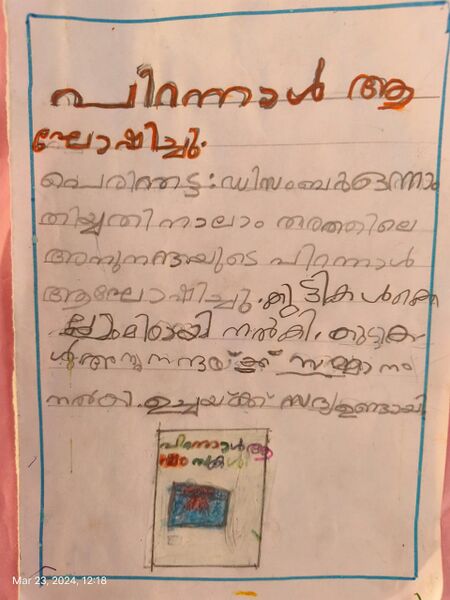 പിറന്നാൾ ആ
ഘോഷിച്ചു.
പെരിഞ്ഞട്ട: ഡിസംബർ ഒന്നാം
തിയ്യതി നാലാം തരത്തിലെ
അനുനന്ദയുടെ പിറന്നാൾ
ആഘോഷിച്ചു. കുട്ടികൾക്കെ
ല്ലാം മിഠായി നൽകി. കുട്ടിക
ൾ അനുനന്ദയ്ക്ക് സമ്മാനം
നൽകി. ഉച്ചയ്ക്ക് സദ്യ ഉണ്ടായി
പിറന്നാൾ ആ
Mar 23, 2024, 12:18